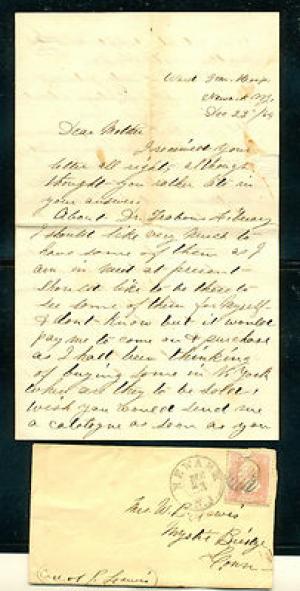 Ward
Newark N.J.
Dec 22nd/64
Dear Mother
I received your
letter all right, although
thought you rather late in
your answer.
About Dr. Library
I should like very much to
have some of them as I
am in need at present
Should like to be there to
see some of them for myself
& don't know but it would
pay me to come on & purchase
as I had been thinking
of buying some in N. York
when are they to be sold,
wish you would send me
a catologue as soon as you
NEWARK
N.J.
Mrs W. P. Lewis
Mystic Bridge
Conn